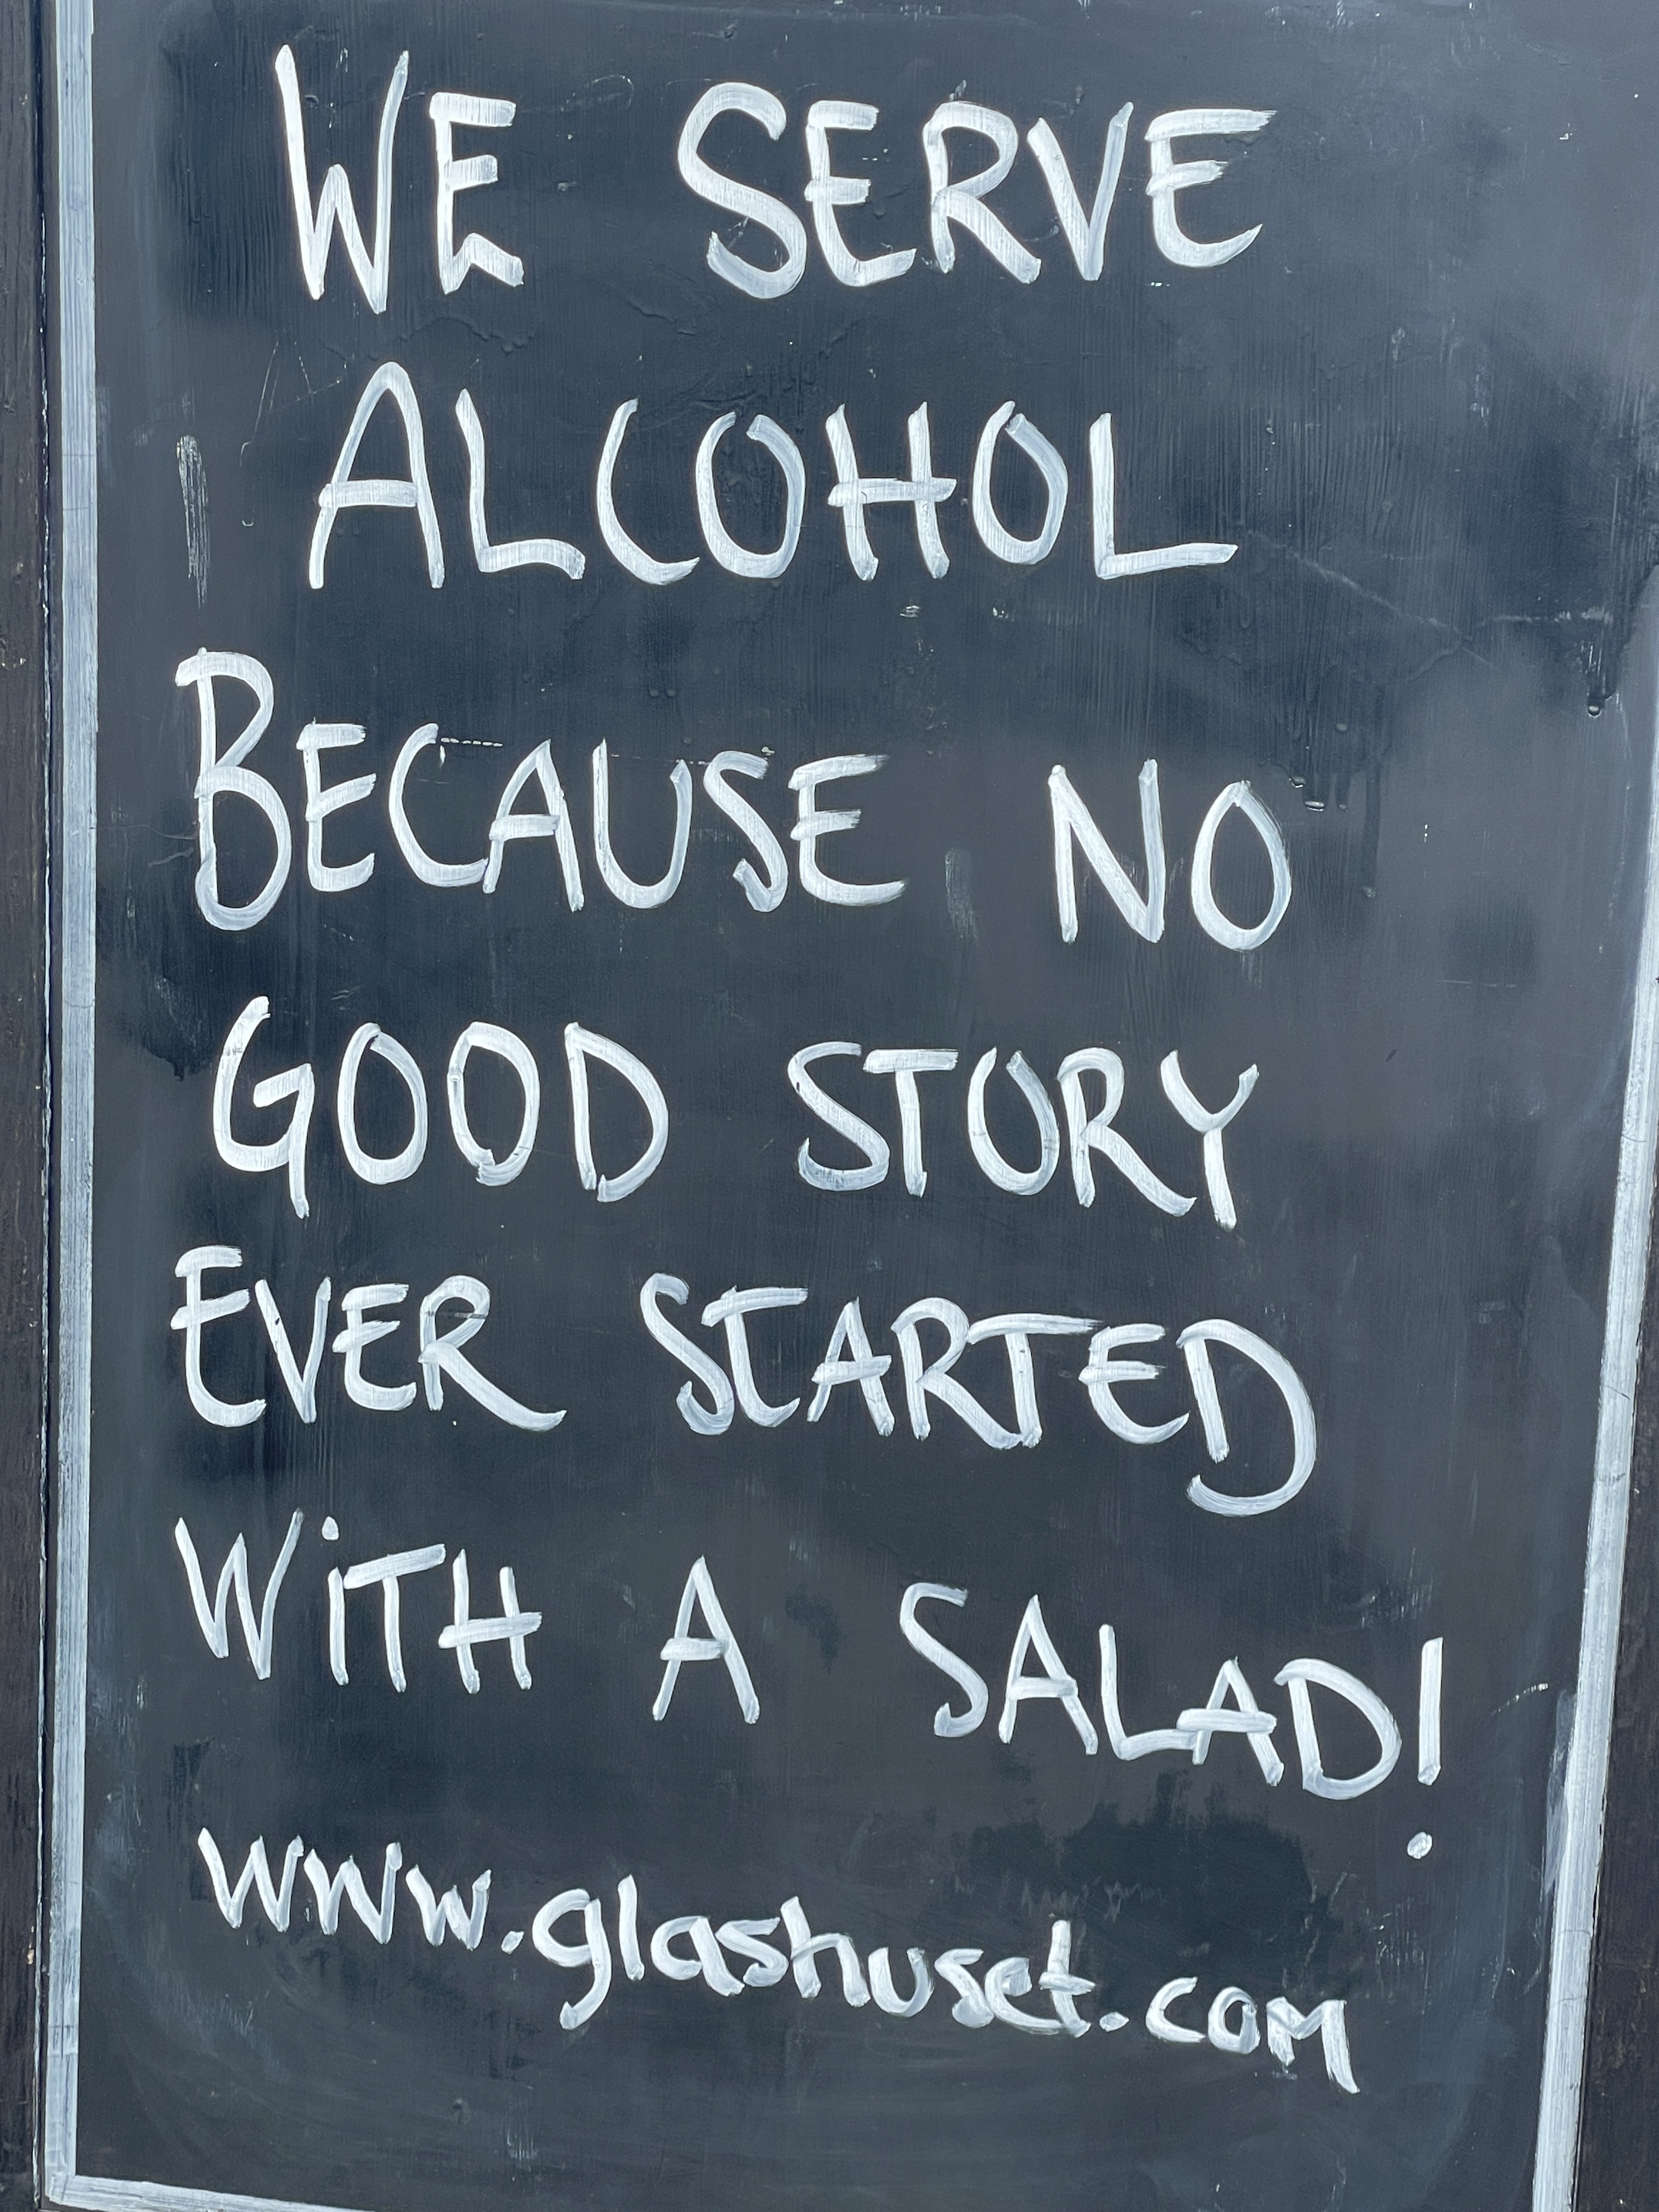 WE SERVE
ALCOHOL
BECAUSE NO
GOOD STORY
EVER STARTED
WiTH A SALAD!
www.glashuset.com